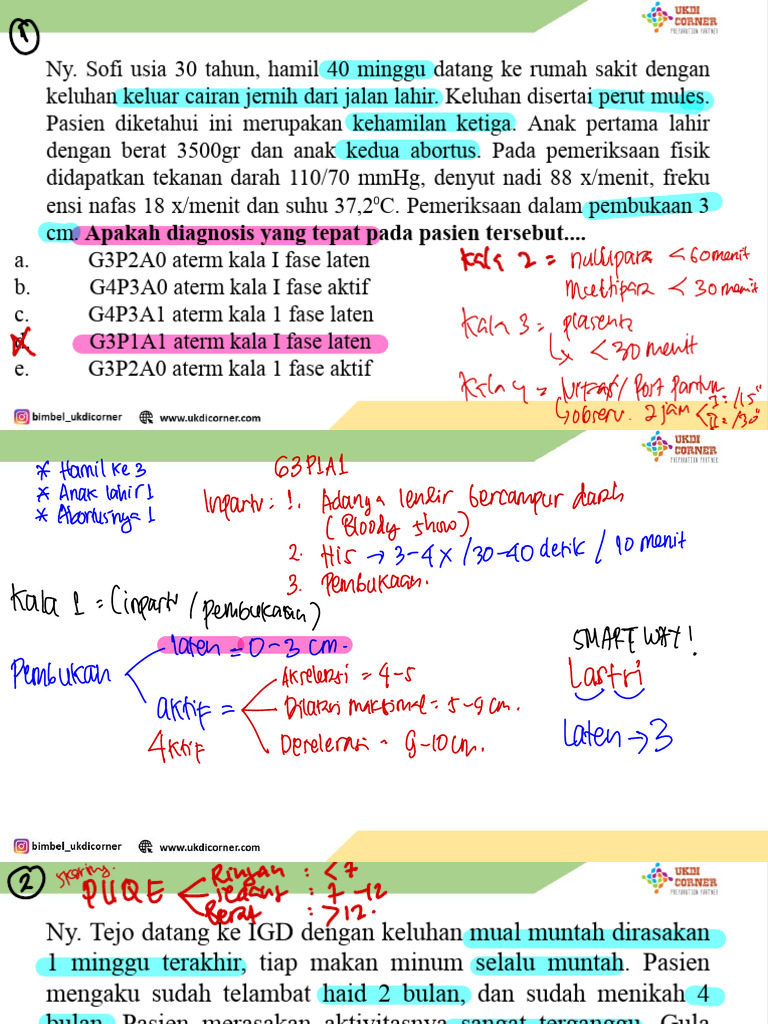 1
UKDI
CORNER
PREPARATION PARTNER
Ny. Sofi usia 30 tahun, hamil 40 minggu datang ke rumah sakit dengan
keluhan keluar cairan jernih dari jalan lahir. Keluhan disertai perut mules.
Pasien diketahui ini merupakan kehamilan ketiga. Anak pertama lahir
dengan berat 3500gr dan anak kedua abortus. Pada pemeriksaan fisik
didapatkan tekanan darah 110/70 mmHg, denyut nadi 88 x/menit, freku
ensi nafas 18 x/menit dan suhu 37,2⁰C. Pemeriksaan dalam pembukaan 3
cm. Apakah diagnosis yang tepat pada pasien tersebut....
a. G3P2A0 aterm kala I fase laten
b. G4P3A0 aterm kala I fase aktif
c. G4P3A1 aterm kala 1 fase laten
d. G3P1A1 aterm kala I fase laten
e. G3P2A0 aterm kala 1 fase aktif
Kala 2 = nullipara < 60 menit
multipara < 30 menit
Kala 3 = plasenta
< 30 menit
Kala 4 = / Post Partum
observ. 2 jam < I = /15"
II = /30"
bimbel_ukdicorner www.ukdicorner.com
UKDI
CORNER
PREPARATION PARTNER
* Hamil ke 3
* Anak lahir 1
* Abortusnya 1
G3P1A1
Inpartu : 1. Adanya lendir bercampur darah
(Bloody show)
2. His → 3-4 x /30-40 detik / 10 menit
3. Pembukaan.
Kala 1 = (inpartu / pembukaan)
Pembukaan
laten = 0-3 cm.
aktif =
4ktif
Akselerasi = 4-5
Dilatasi maksimal = 5-9 cm.
Deselerasi = 9-10 cm.
SMART WAY!
Lastri
Laten → 3
bimbel_ukdicorner www.ukdicorner.com
2
skoring.
PUQE
Ringan : < 7
sedang : 7-12
Berat : > 12.
UKDI
CORNER
PREPARATION PARTNER
Ny. Tejo datang ke IGD dengan keluhan mual muntah dirasakan
1 minggu terakhir, tiap makan minum selalu muntah. Pasien
mengaku sudah telambat haid 2 bulan, dan sudah menikah 4
bulan. Pasien merasakan aktivitasnya sangat terganggu. Gula